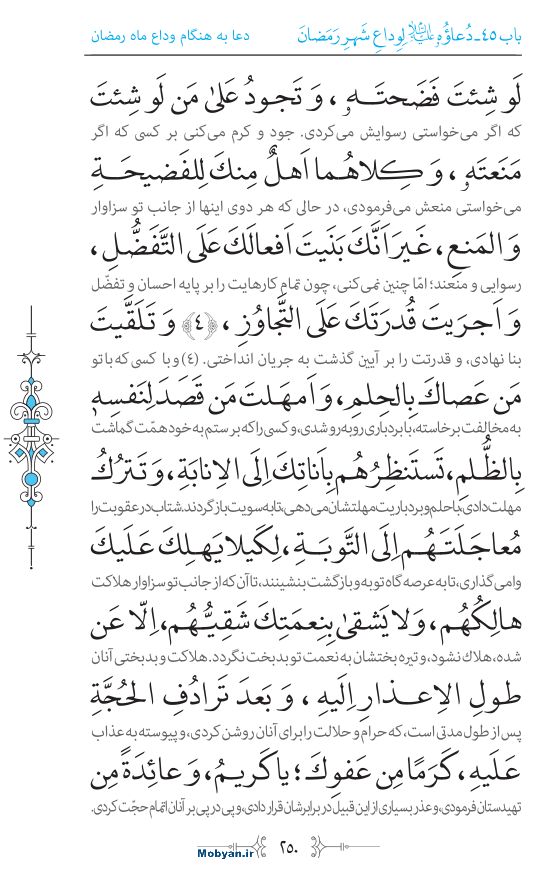 باب ٤٥-دُعاؤُهُ عليه‌السلام لِوِداعِ شَهرِ رَمَضانَ
دعا به هنگام وداع ماه رمضان
لَو شِئتَ فَضَحتَهُ ، وَ تَجودُ عَلىٰ مَن لَو شِئتَ
که اگر می‌خواستی رسوایش می‌کردی. جود و کرم می‌کنی بر کسی که اگر
مَنَعتَهُ ، وَ كِلاهُما اَهلٌ مِنكَ لِلفَضيحَةِ
می‌خواستی منعش می‌فرمودی، در حالی که هر دوی اینها از جانب تو سزاوار
وَ المَنعِ، غَيرَ اَنَّكَ بَنَيتَ اَفعالَكَ عَلَى التَّفَضُّلِ ،
رسوایی و منعند؛ امّا چنین نمی‌کنی، چون تمام کارهایت را بر پایه احسان و تفضّل
وَ اَجرَيتَ قُدرَتَكَ عَلَى التَّجاوُزِ ، ﴿٤﴾ وَ تَلَقَّيتَ
بنا نهادی، و قدرتت را بر آیین گذشت به جریان انداختی. (٤) و با کسی که با تو
مَن عَصاكَ بِالحِلمِ، وَ اَمهَلتَ مَن قَصَدَ لِنَفسِهِ
به مخالفت برخاسته، با بردباری روبه‌رو شدی، و کسی را که بر ستم به خود همّت گماشت
بِالظُّلمِ، تَستَنظِرُهُم بِاَناتِكَ اِلَى الاِنابَةِ، وَ تَترُكُ
مهلت دادی، با حلم و بردباریت مهلتشان می‌دهی، تا به سویت باز گردند. شتاب در عقوبت را
مُعاجَلَتَهُم اِلَى التَّوبَةِ، لِكَيلا يَهلِكَ عَلَيكَ
وامی‌گذاری، تا به عرصه گاه توبه و بازگشت بنشینند، تا آن که از جانب تو سزاوار هلاکت
هالِكُهُم، وَ لا يَشقىٰ بِنِعمَتِكَ شَقِيُّهُم، اِلّا عَن
شده، هلاک نشود، و تیره بختشان به نعمت تو بدبخت نگردد. هلاکت و بدبختی آنان
طولِ الاِعذارِ اِلَيهِ ، وَ بَعدَ تَرادُفِ الحُجَّةِ
پس از طول مدتی است، که حرام و حلالت را برای آنان روشن کردی، و پیوسته به عذاب
عَلَيهِ، كَرَمًا مِن عَفوِكَ؛ يا كَريمُ، وَ عائِدَةً مِن
تهیدستان فرمودی، و عذر بسیاری از این قبیل در برابرشان قرار دادی، و پی در پی بر آنان اتمام حجّت کردی.
٢٥٠
Mobyan.ir